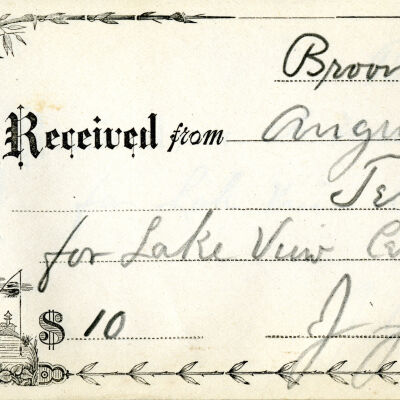 Broo
Received from Angu
Te
for Lake View Ce
$ 10
J